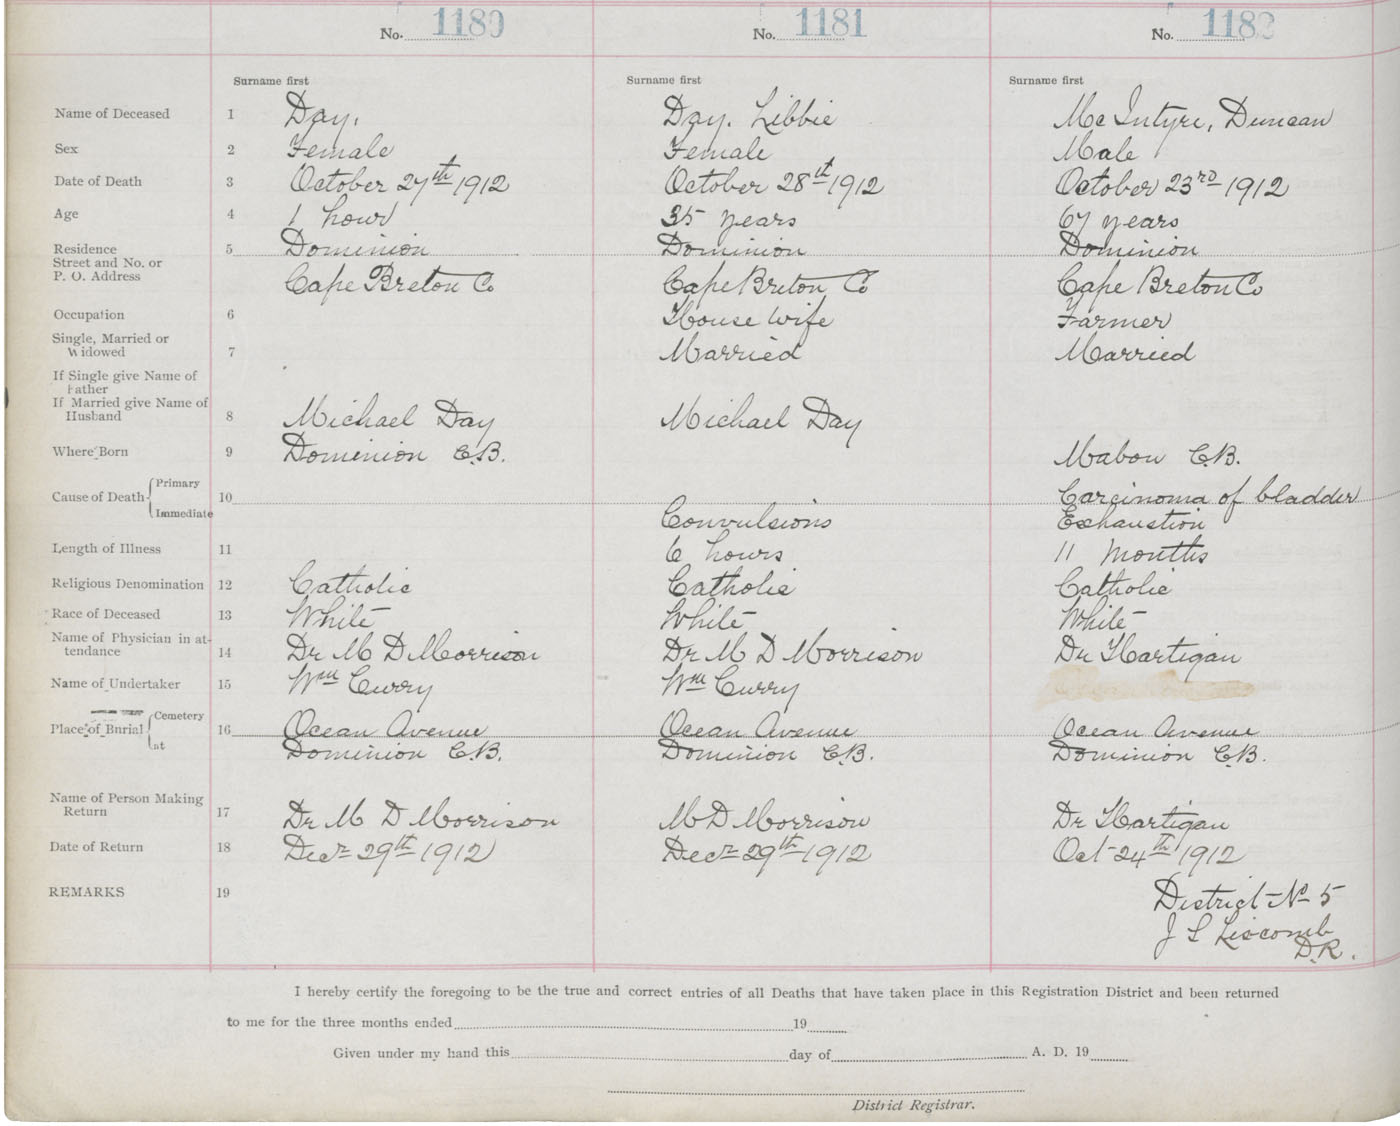 No. 1180 No. 1181 No. 1182
Surname first Surname first Surname first
Name of Deceased 1 Day, Day. Libbie McIntyre, Duncan
Sex 2 Female Female Male
Date of Death 3 October 27th 1912 October 28th 1912 October 23rd 1912
Age 4 1 hour 35 years 67 years
Residence 5 Dominion Dominion Dominion
Street and No. or
P. O. Address Cape Breton Co Cape Breton Co Cape Breton Co
Occupation 6 House wife Farmer
Single, Married or
Widowed 7 Married Married
If Single give Name of
Father
If Married give Name of
Husband 8 Michael Day Michael Day
Where Born 9 Dominion C.B. Mabou C.B.
Cause of Death Primary 10 Carcinoma of bladder
Immediate Convulsions Exhaustion
Length of Illness 11 6 hours 11 months
Religious Denomination 12 Catholic Catholic Catholic
Race of Deceased 13 White White White
Name of Physician in at-
tendance 14 Dr M D Morrison Dr M D Morrison Dr Hartigan
Name of Undertaker 15 Wm Curry Wm Curry
Place of Burial Cemetery 16 Ocean Avenue Ocean Avenue Ocean Avenue
at Dominion C.B. Dominion C.B. Dominion C.B.
Name of Person Making
Return 17 Dr M D Morrison M D Morrison Dr Hartigan
Date of Return 18 Decr 29th 1912 Decr 29th 1912 Oct 24th 1912
REMARKS 19 District No 5
J S Liscomb
D.R.
I hereby certify the foregoing to be the true and correct entries of all Deaths that have taken place in this Registration District and been returned
to me for the three months ended 19
Given under my hand this day of A. D. 19
District Registrar.